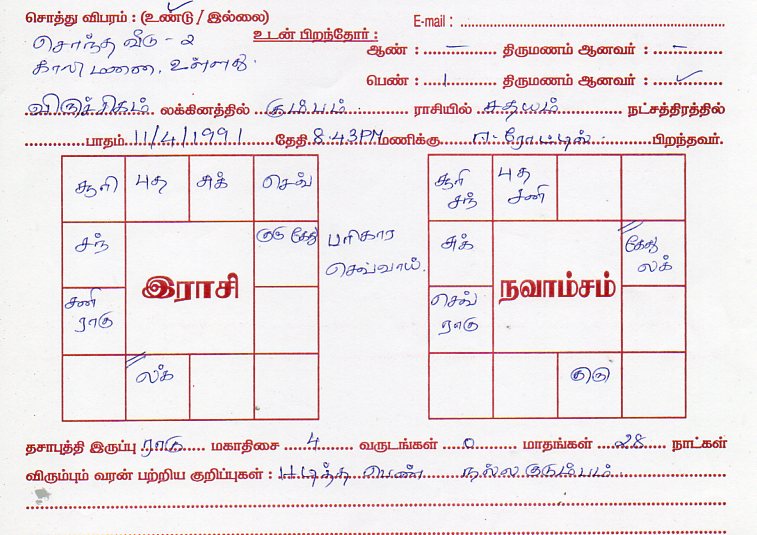 சொத்து விபரம் : (உண்டு / இல்லை)
E-mail :
சொந்த வீடு - 2
உடன் பிறந்தோர் :
காலி மணை, உள்ளது.
ஆண் : – திருமணம் ஆனவர் : –
பெண் : 1 திருமணம் ஆனவர் : ✓
விருச்சிகம் லக்கினத்தில் கும்பம் ராசியில் சதயம் நட்சத்திரத்தில்
பாதம் 11/4/1991 தேதி 8.43PM மணிக்கு ஈ-ரோட்டில் பிறந்தவர்.
சூரி புத சுக் செவ்
சூரி சந் புத சனி
சந் குரு கேது
பரிகார செவ்வாய்.
சுக் கேது லக்
இராசி
நவாம்சம்
சனி ராகு
செவ் ராகு
லக்
குரு
தசாபுத்தி இருப்பு ராகு மகாதிசை 4 வருடங்கள் 0 மாதங்கள் 28 நாட்கள்
விரும்பும் வரன் பற்றிய குறிப்புகள் : படித்த பெண் நல்ல குடும்பம்